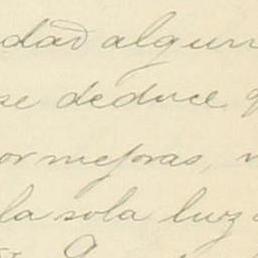 dad algun
se deduce q
or mejoras,
la sola luz